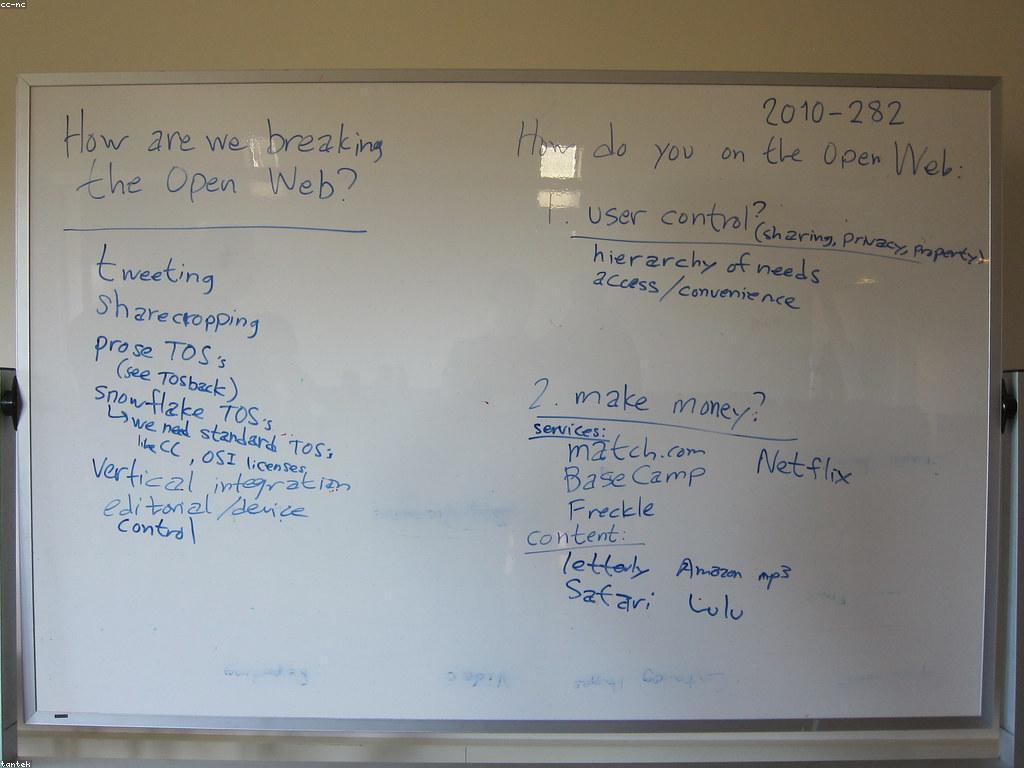 cc-nc
How are we breaking
the Open Web?
tweeting
sharecropping
prose TOS:s
(see Tosback)
snowflake TOS:s
↳ we need standard TOS:s
like CC, OSI licenses,
vertical integration
editorial/device
control
2010-282
How do you on the Open Web:
1. user control?
(sharing, privacy, property)
hierarchy of needs
access/convenience
2. make money?
services:
match.com
Netflix
BaseCamp
Freckle
content:
letterly Amazon mp3
Safari Lulu
tantek